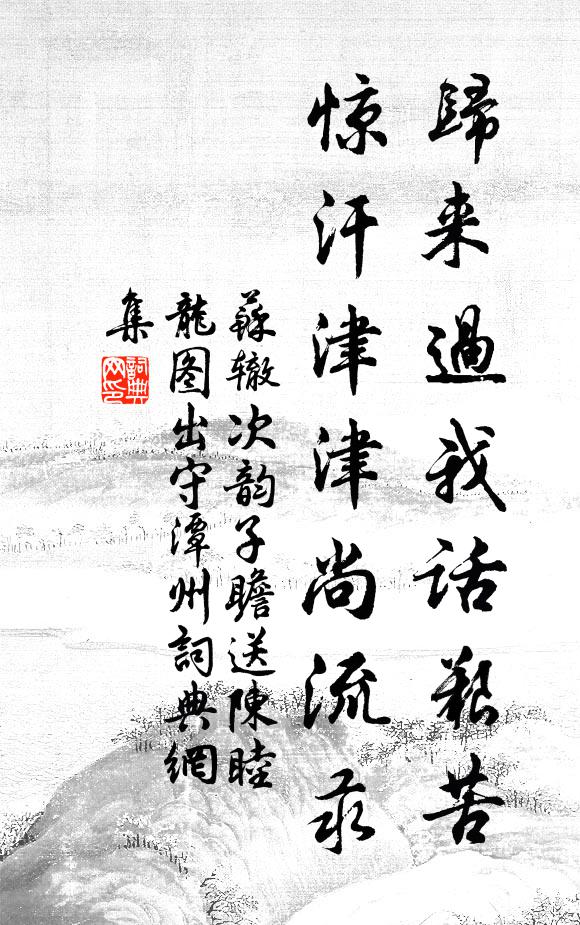 歸来過我話艱苦
惊汗津津尚流汞
蘇辙次韵子瞻送陳睦
龍图出守潭州詞典網
集
詞典
网印